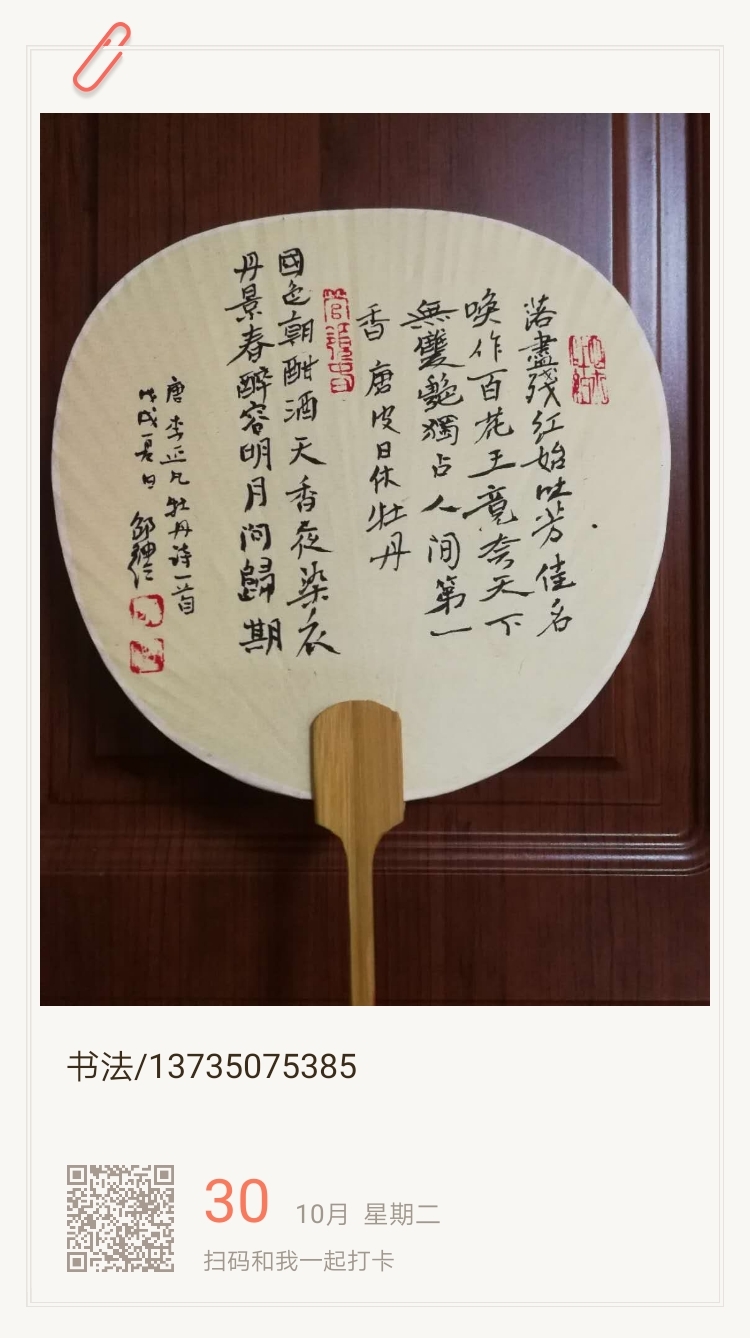 落盡殘紅始吐芳佳名
喚作百花王竟夸天下
無雙艷獨占人間第一
香 唐皮日休牡丹
國色朝酣酒天香夜染衣
丹景春醉容明月问歸期
唐李正凡牡丹诗一首
戊戌夏日
书法/13735075385
30 10月 星期二
扫码和我一起打卡